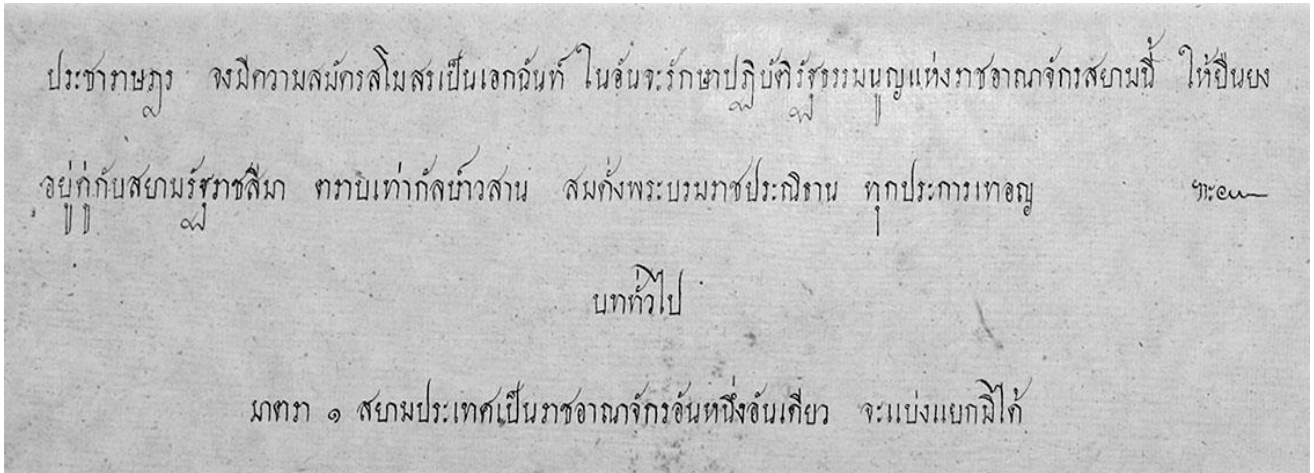 ประชาราษฎร จงมีความสมัครสโมสรเป็นเอกฉันท์ ในอันจะรักษาปฏิบัติรัฐธรรมนูญแห่งราชอาณาจักรสยามนี้ ให้ยืนยง
อยู่คู่กับสยามรัฐราชสีมา ตราบเท่ากัลปาวสาน สมดั่งพระบรมราชประณิธาน ทุกประการเทอญ ๚ะ๛
บททั่วไป
มาตรา ๑ สยามประเทศเป็นราชอาณาจักรอันหนึ่งอันเดียว จะแบ่งแยกมิได้